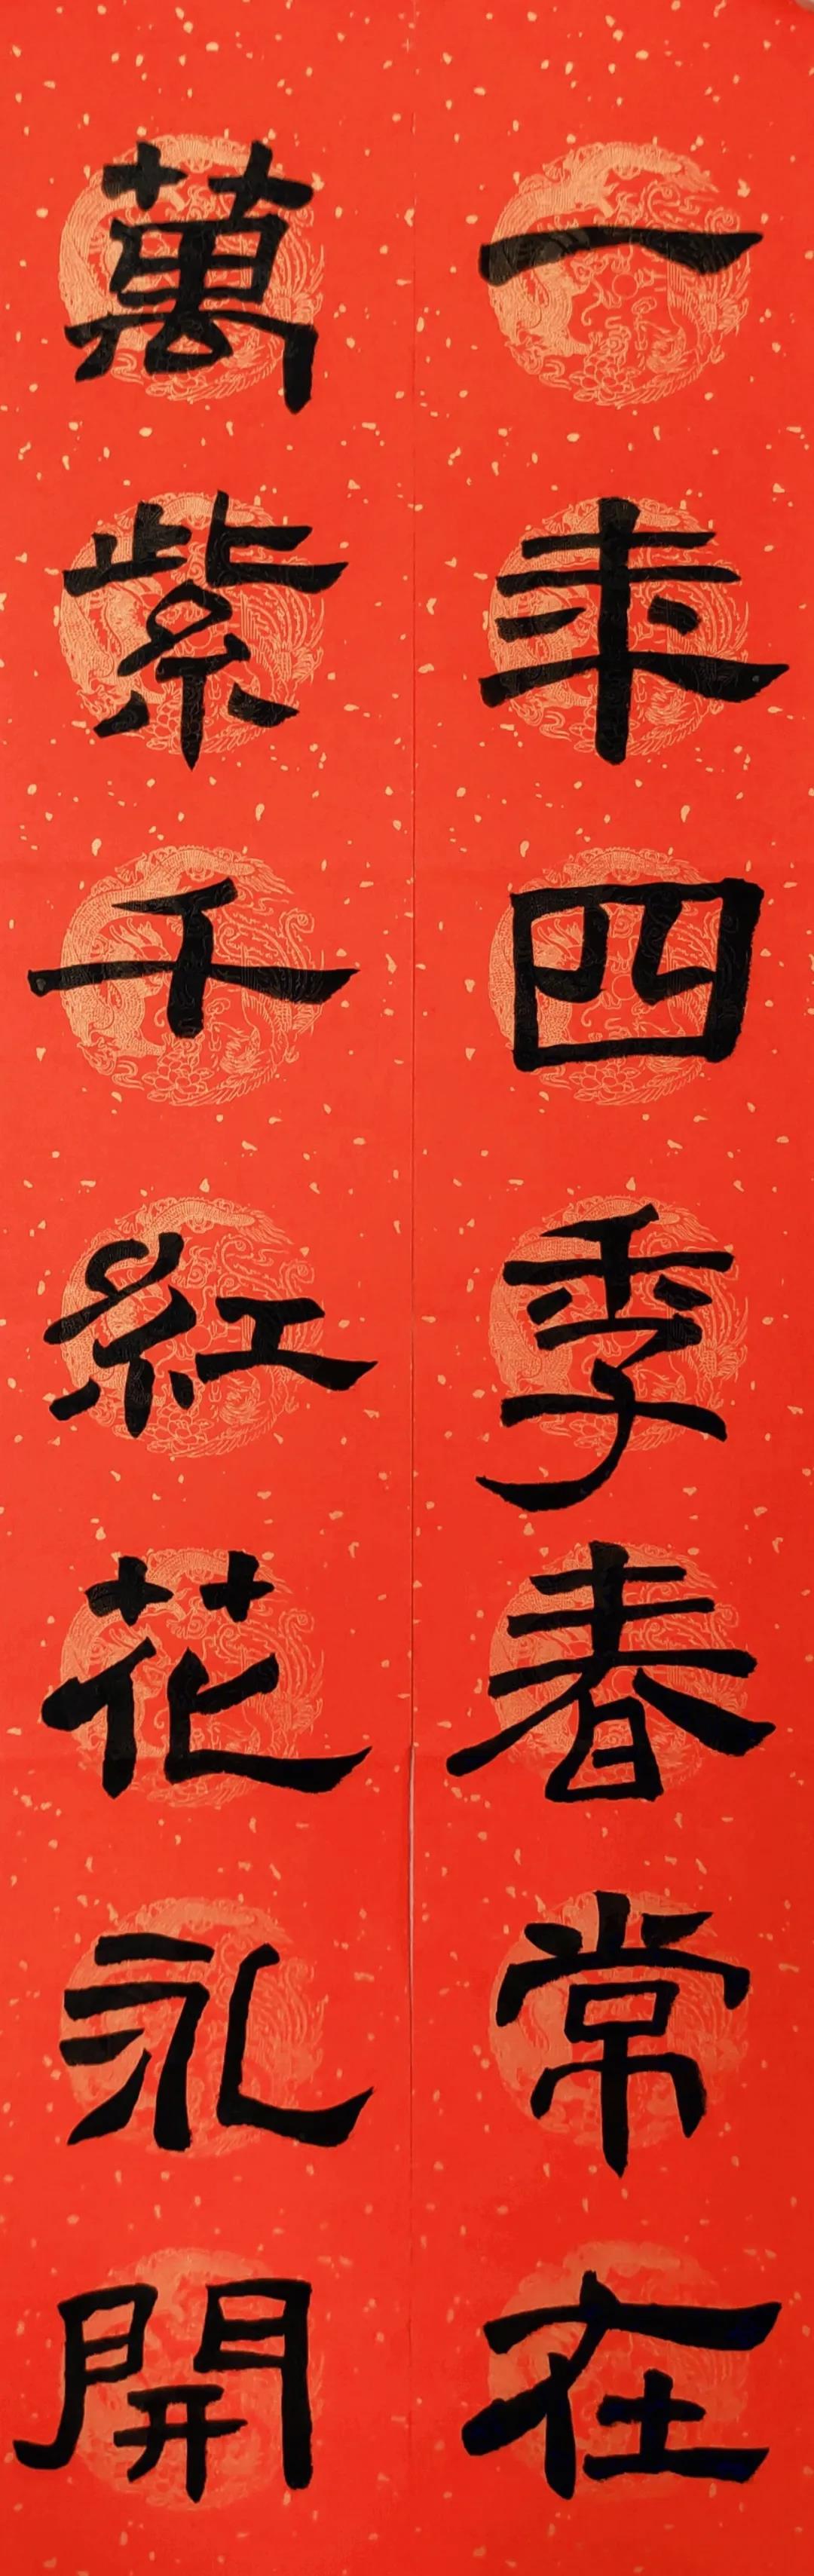 一年四季春常在
萬紫千紅花永開